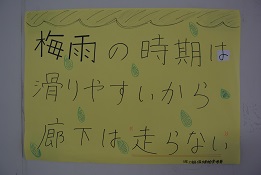 梅雨の時期は
滑りやすいから
廊下は走らない